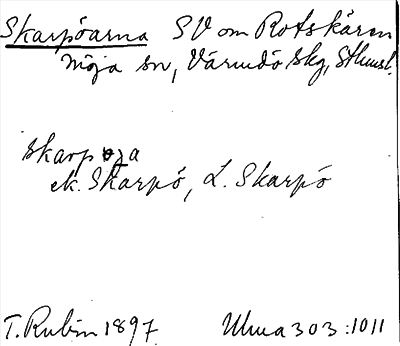 Skarpöarna SV om Rotskären
Möja sn, Värmdö skg, Sthmsl.
skarpöza
ek. Skarpö, L. Skarpö
T. Rubin 1897 Ulma 303:1011